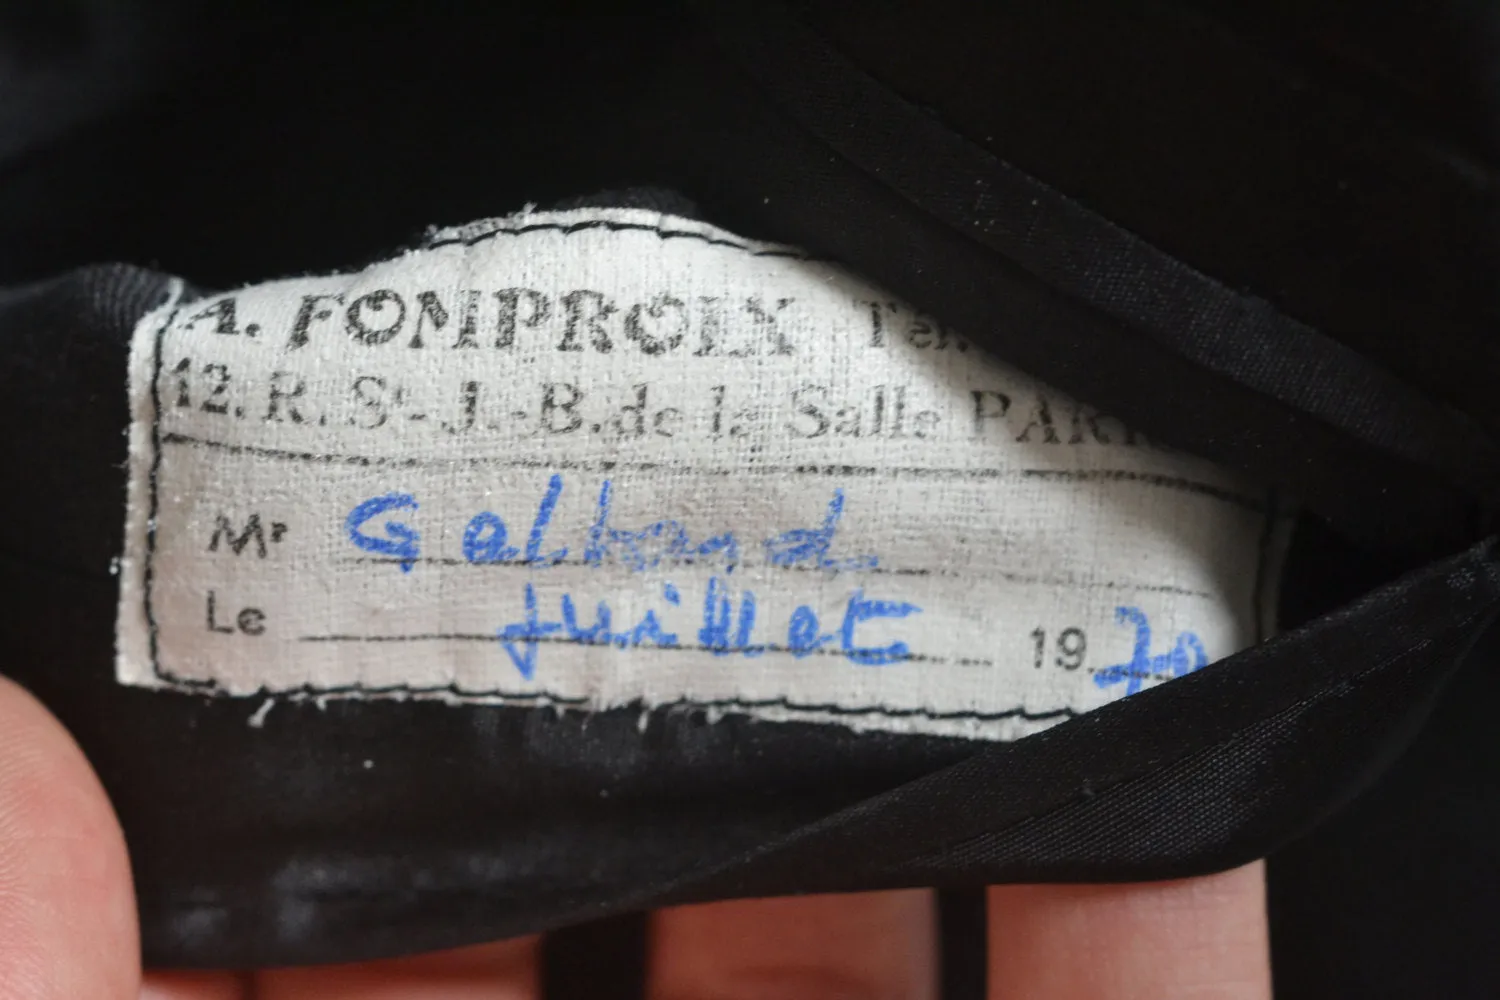 A. FOMPROIX Tél.
12. R. St-J.-B. de la Salle PARI
Mr
Le Juillet 1970